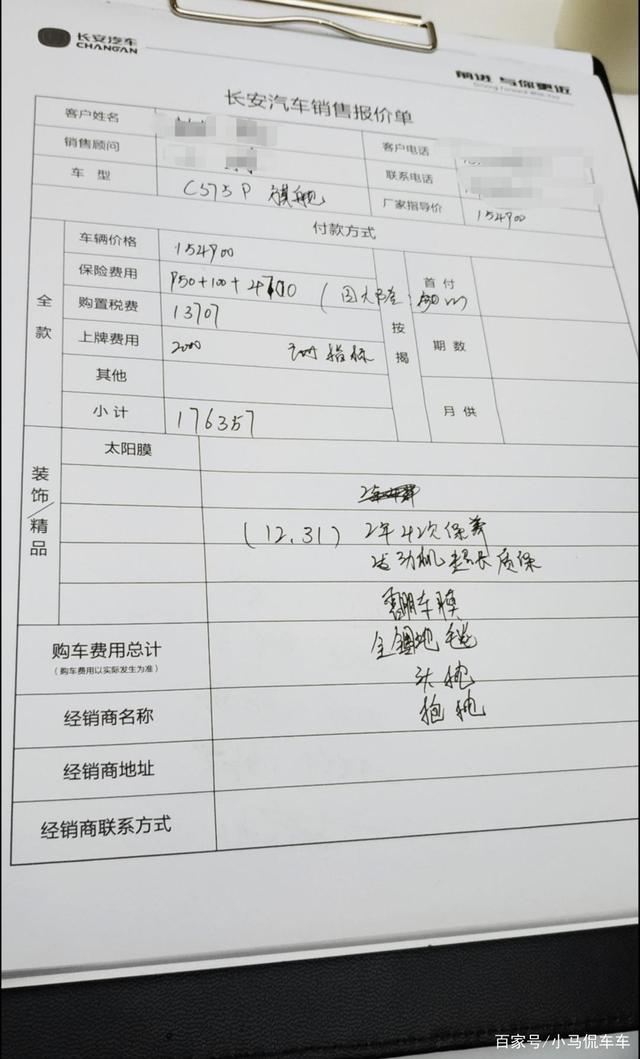 长安汽车
CHANGAN
前进 与你更近
Driving Forward With You
长安汽车销售报价单
客户姓名
客户电话
销售顾问
联系电话
车 型
CS75P 旗舰
厂家指导价
154900
付款方式
全款
车辆价格
154900
按揭
首付
保险费用
950+100+4700
购置税费
13707
期数
上牌费用
2000
指标
其他
月供
小计
176357
装饰/精品
太阳膜
(12.31) 2年42次保养
发动机超长质保
车膜
购车费用总计
(购车费用以实际发生为准)
全围地毯
头枕
抱枕
经销商名称
经销商地址
经销商联系方式
百家号/小马侃车车